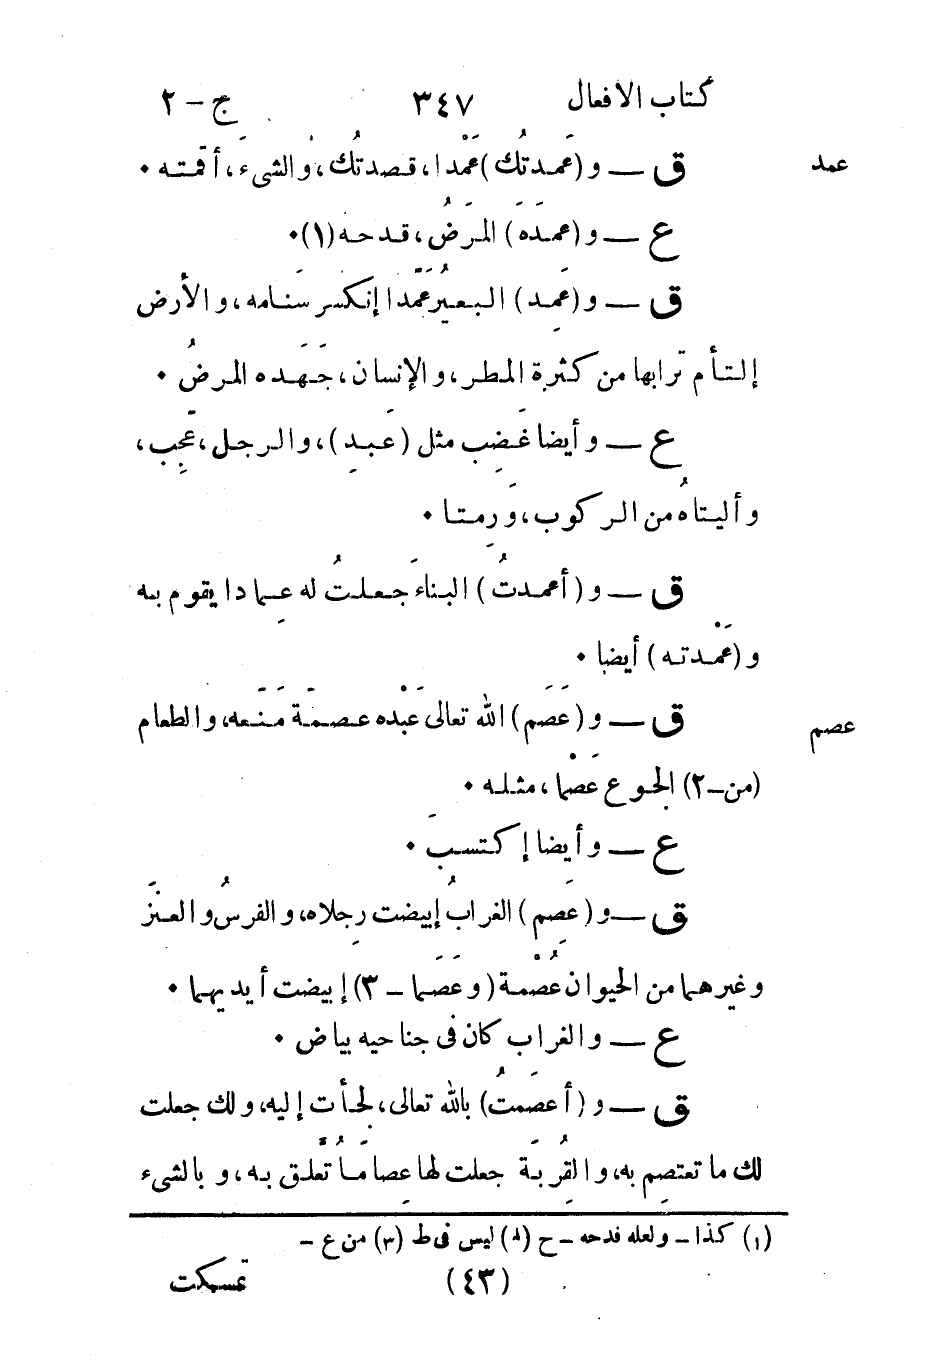 كتاب الافعال ٣٤٧ ج - ٢
عمد ق — و (عَمَدتُك) عَمْدا، قصدتُك، والشىءَ، أقمته •
ع — و (عَمَدَه) المرَضُ، قدحه (١) •
ق — و (عَمِد) البعيرُ عَمَدًا إنكسر سَنامه، والأرض
إلتأم تَرابها من كثرة المطر، والإنسان، جَهَده المرضُ •
ع — وأيضا غَضِب مثل (عَبِد)، والرجل، عَجِب،
وأليتاهُ من الركوب، وَرِمتا •
ق — و (أعمدتُ) البناءَ جَعلتُ له عِمادا يقوم به
و (عَمْدته) أيضا •
عصم ق — و (عَصَم) الله تعالى عَبْده عِصمَةً مَنَعه، والطعام
(من-٢) الجوع عَصْما، مثله •
ع — وأيضا إكتسب •
ق — و (عَصِم) الغرابُ إبيضت رِجلاه، والفرسُ والعنَز
وغيرهما من الحيوان عُصْمة (وعَصَما - ٣) إبيضت أيديهما •
ع — والغراب كان فى جناحيه بياض •
ق — و (أعصَمتُ) بالله تعالى، لجأت إليه، ولك جعلت
لك ما تعتصِم به، والقِربَة جعلت لها عِصامًا تُعَلّق به، وبالشىء
(١) كذا - ولعله فدحه - ح (٢) ليس فى ط (٣) من ع -
(٤٣) تمسكت